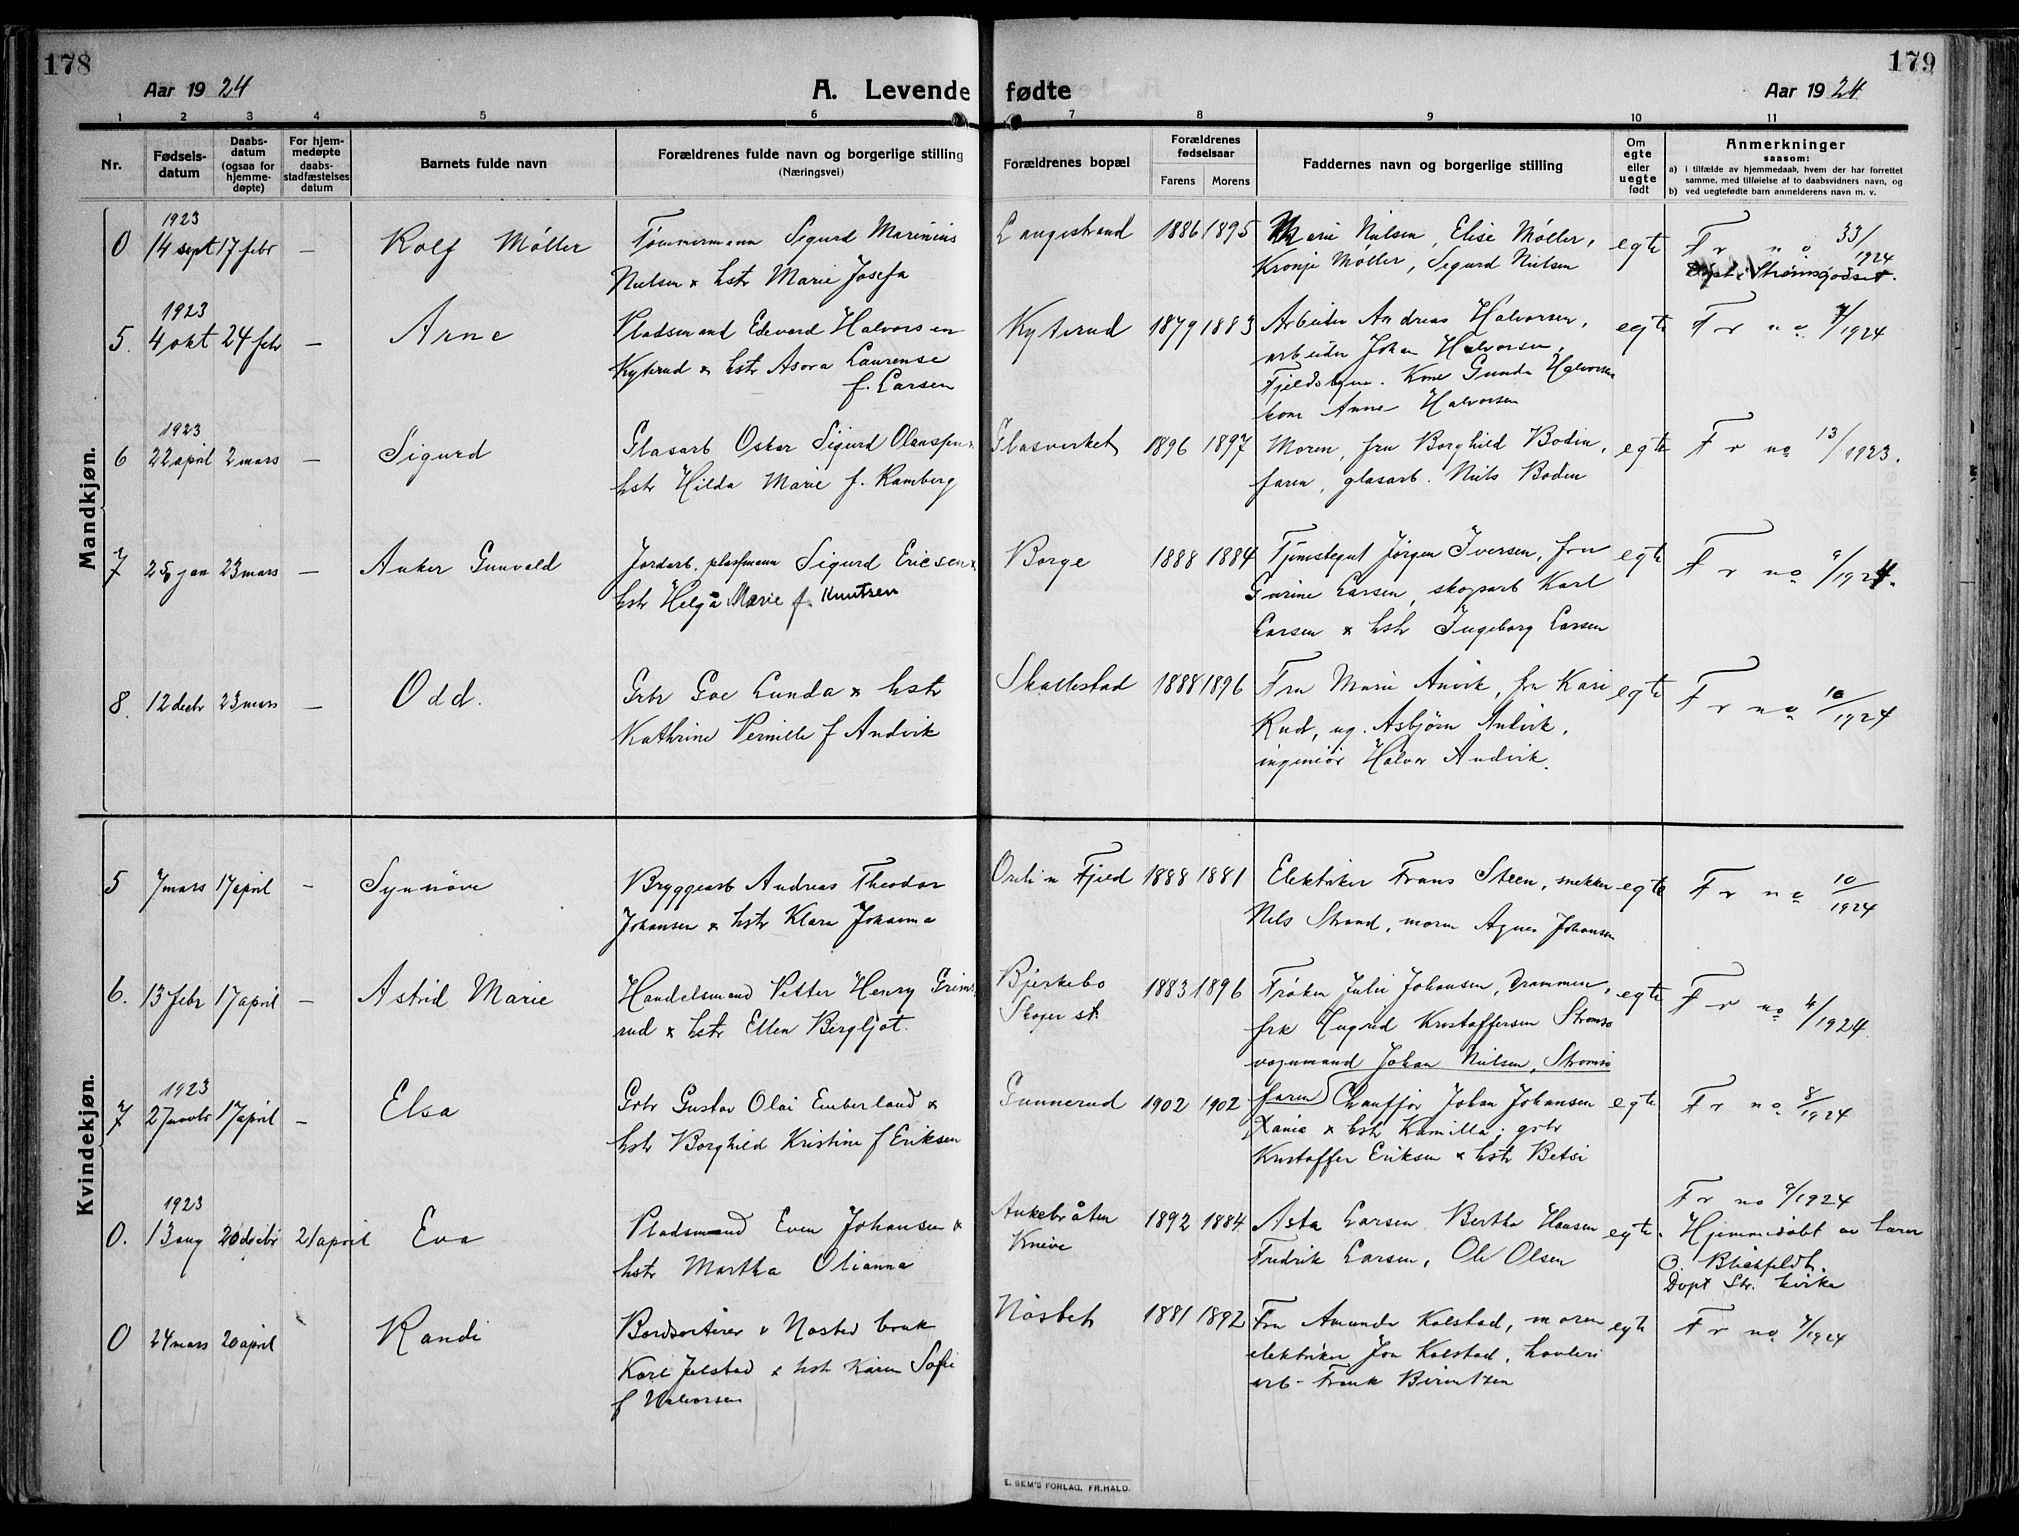 178
179
Aar 1924
A. Levende fødte
Aar 1924
1 2 3 4 5 6 7 8 9 10 11
Nr.
Fødsels-
datum
Daabs-
datum
(ogsaa for
hjemme-
døpte)
For hjem-
medøpte
daabs-
stadfæstelses
datum
Barnets fulde navn
Forældrenes fulde navn og borgerlige stilling
(Næringsvei)
Forældrenes bopæl
Forældrenes
fødselsaar
Farens Morens
Faddernes navn og borgerlige stilling
Om
egte
eller
uegte
født
Anmerkninger
saasom:
a) i tilfælde av hjemmedaab, hvem der har forrettet
samme, med tilføielse af to daabsvidners navn, og
b) ved uegtefødte barn anmelderens navn m. v.
Mandkjøn.
1923
0 14 sept 17 febr — Rolf Møller
Tømmermann Sigurd Marinius
Nielsen x hstr Marie Josefa
Langestrand 1886 1895
Marie Nielsen, Elise Møller,
Kronje Møller, Segurd Nielsen
egte
Fr no 33/1924
Døpt i Strømsgodset.
1923
5. 4 okt 24 febr — Arne
Pladsmand Edevard Halvorsen
Kyterud x hstr Asora Laurense
f. Larsen
Kyterud 1879 1883
Arbeider Andreas Halvorsen,
arbeider Johan Halvorsen,
Fjeldsbyen. Kone Gunda Halvorsen
kone Anne Halvorsen
egte
Fr no 7/1924
1923
6 22 april 2 mars — Sigurd
Glasarb Oskar Sigurd Olaussen x
hstr Hilda Marie f. Ramberg
Glasverket 1896 1897
Moren, fru Borghild Bodin,
faren, glasarb. Niels Boden
egte
Fr no 13/1923.
7 25 jan 23 mars — Anker Gunvald
Jordarb. plassmann Sigurd Ericsen x
hstr Helga Marie f. Knutsen
Borge 1888 1884
Tjenstegut Jørgen Iversen, fru
Gurine Larsen, skoparb Karl
Larsen x hstr Ingeborg Larsen
egte
Fr no 9/1924.
8. 12 decbr 23 mars — Odd.
Grbr Goe Lunda x hstr
Kathrine Pernille f Andvik
Skallestad 1888 1896
Fru Marie Anvik, fru Kari
Rud, ug. Asbjørn Andvik,
ingeniør Halvor Andvik.
egte
Fr no 10/1924
Kvindekjøn.
5 7 mars 17 april — Synnøve
Bryggearb Andreas Theodor
Johansen x hstr Klara Johanna
Fjeld 1888 1881
Elektriker Frans Steen, snekker
Nils Strand, moren Agnes Johansen
egte
Fr no 10/1924
6. 13 febr 17 april — Astrid Marie
Handelsmand Petter Henry Grims-
rud x hstr Ellen Bergljot.
Bjerkebo
Skoger st.
1883 1896
Frøken Julie Johansen, Drammen,
frk Ingrid Kristoffersen Strømsø
vognmand Johan Nielsen, Strømsø
egte
Fr no 4/1924.
1923
7 27 novbr 17 april — Elsa
Grbr Gustav Olai Emberland x
hstr Borghild Kristine f Eriksen
Gunnerud 1902 1902
faren Chauffør Johan Johansen
x hstr Kamilla, grbr
Kristoffer Eriksen x hstr Betsi
egte
Fr no 8/1924
1923
0. 13 aug 20 decbr 21 april Eva
Pladsmand Even Johansen x
hstr Martha Olianna
Ankebråten
Knive
1892 1884
Asta Larsen Bertha Hansen
Fredrik Larsen, Ole Olsen
egte.
Fr no 9/1924
Hjemmedøbt av lærer
O. Blichfeldt.
Døpt Str. kirke
0 24 mars 20 april Randi
Bordsorterer v Nøsted bruk
Karl Jelstad x hstr Karen Sofie
f Halvorsen
Nøsbet 1881 1892
Fru Amanda Kolstad, moren
elektriker Jon Kolstad,
arb- Frank Berntzen
egte
Fr no 7/1924
E. SEM'S FORLAG, FR.HALD.